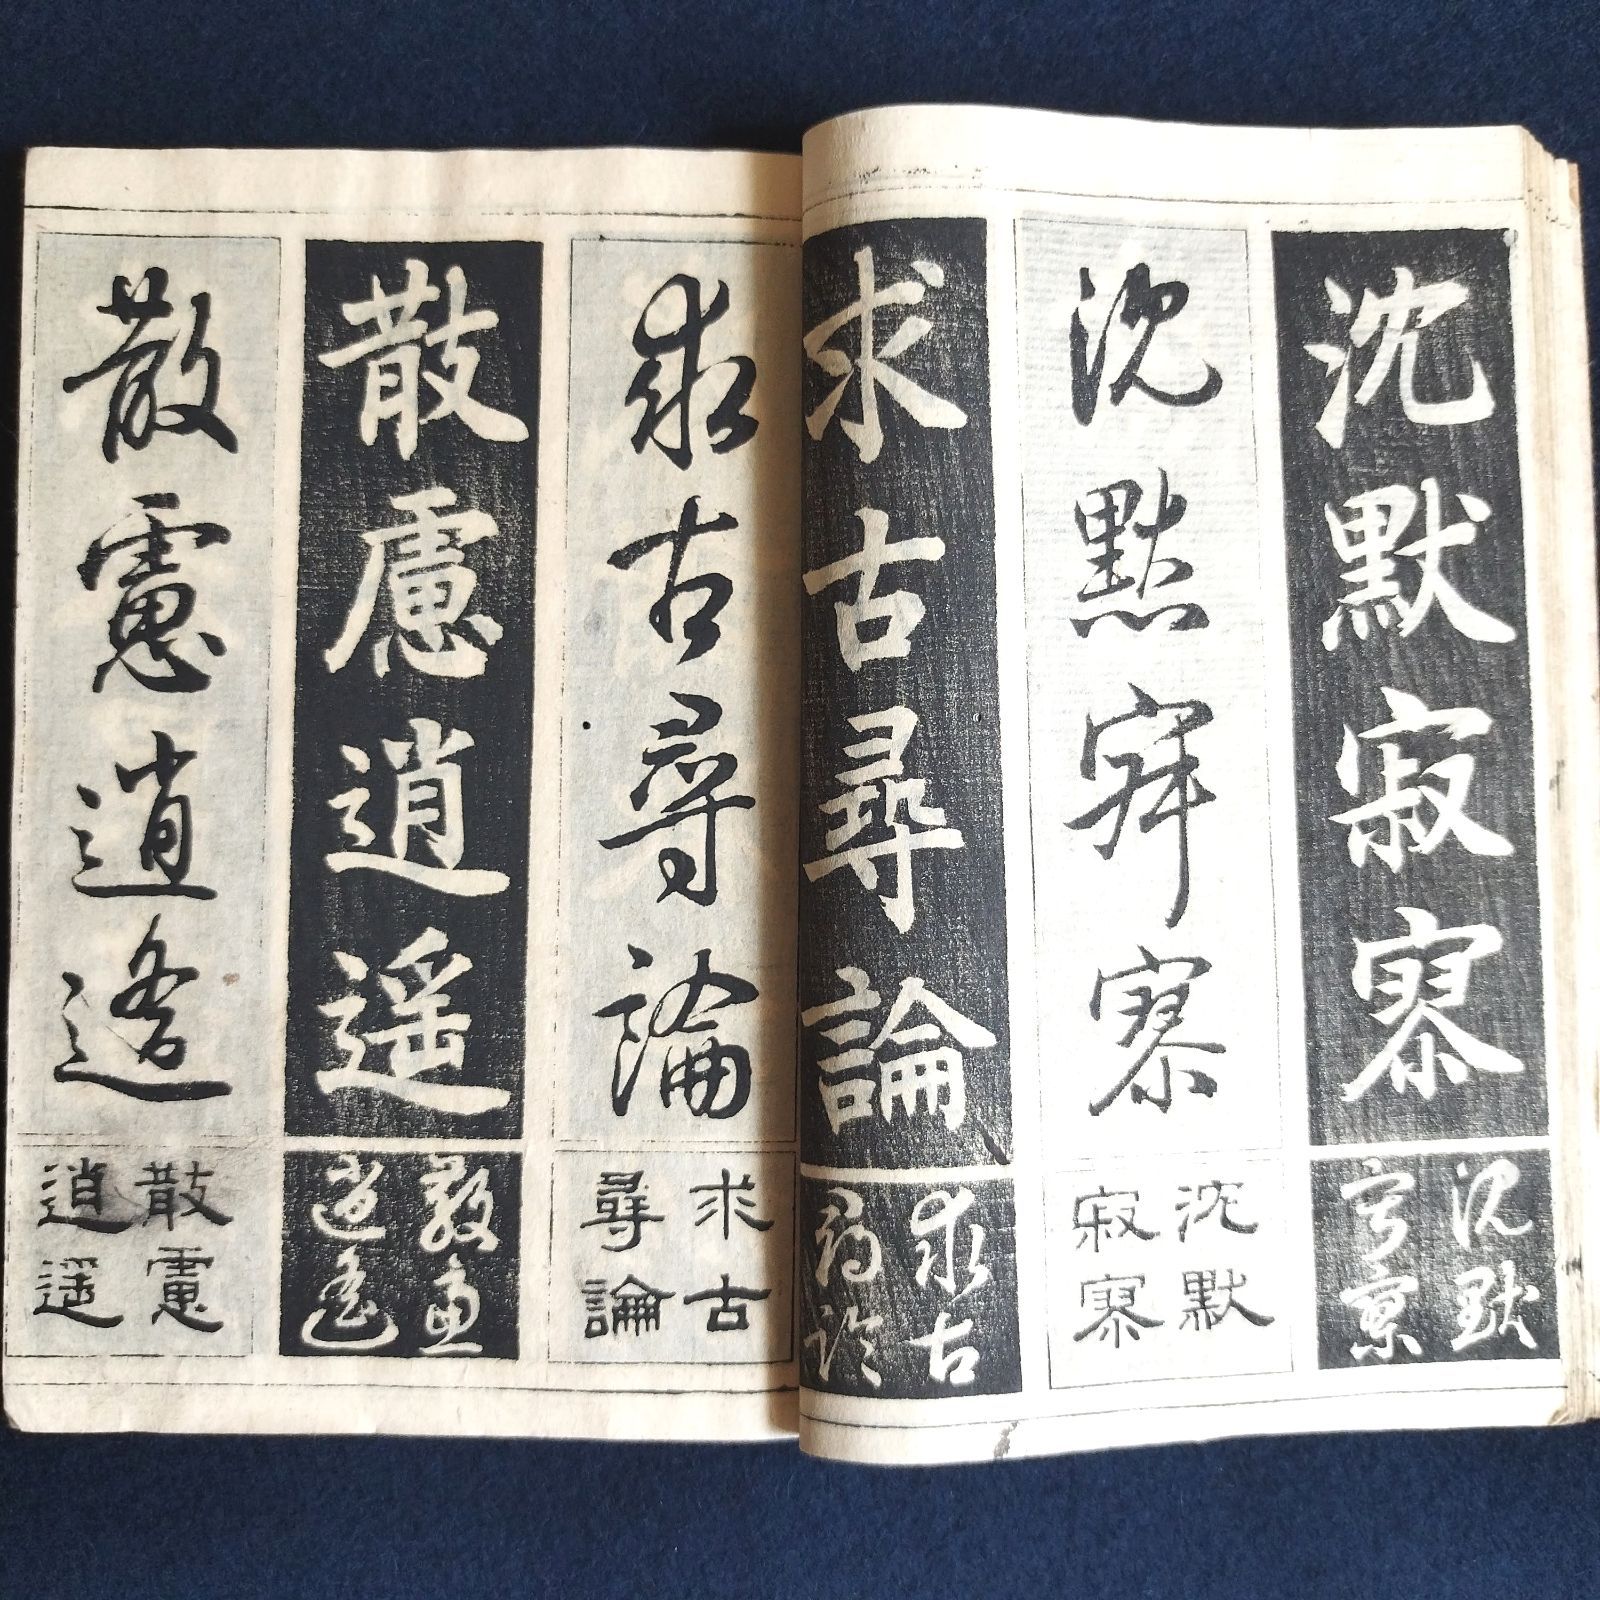 沈默寂寥
沈默
寂寥
沈默寂寥
沈默
寂寥
求古尋論
求古
尋論
求古尋論
求古
尋論
散慮逍遥
散慮
逍遥
散慮逍遥
散慮
逍遥